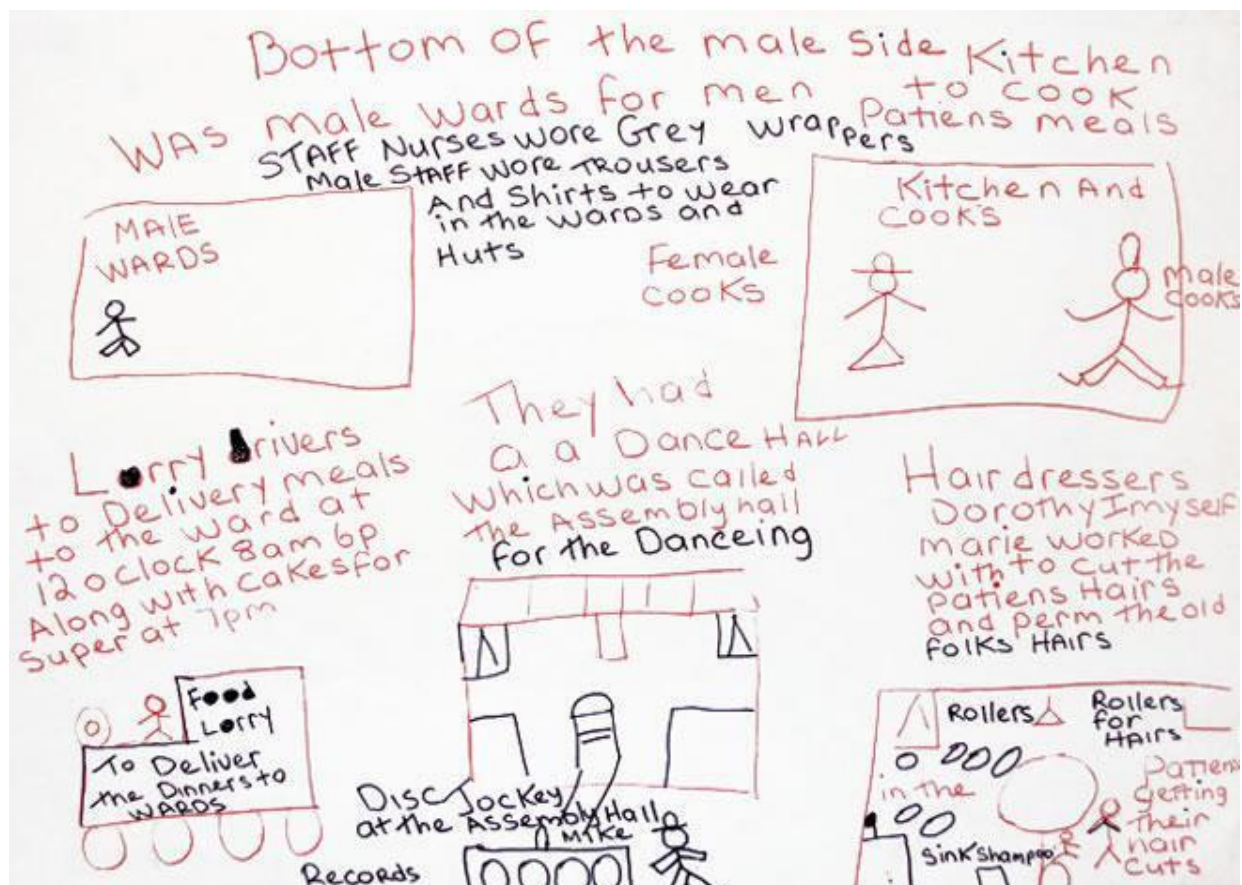 Bottom of the male side
Was male wards for men
Kitchen
to cook
Patiens meals
STAFF Nurses wore Grey wrappers
Male STAFF wore TROUSERS
And Shirts to wear
in the wards and
Huts
MAlE
WARDS
Female
Cooks
Kitchen And
Cooks
male
cooks
Lorry drivers
to Delivery meals
to the ward at
12 oclock 8am 6p
Along with cakes for
Super at 7pm
They had
a a Dance HALL
Which was called
the Assembly hall
for the Danceing
Hairdressers
Dorothy I myself
marie worked
with to cut the
patiens Hairs
and perm the old
folks HAirs
Food
Lorry
To Deliver
the Dinners to
WARDS
Disc Jockey
at the Assembly Hall
Mike
Records
Rollers
Rollers
for
HAirs
in the
Patiens
getting
Their
hair
cuts
Sink Shampoo